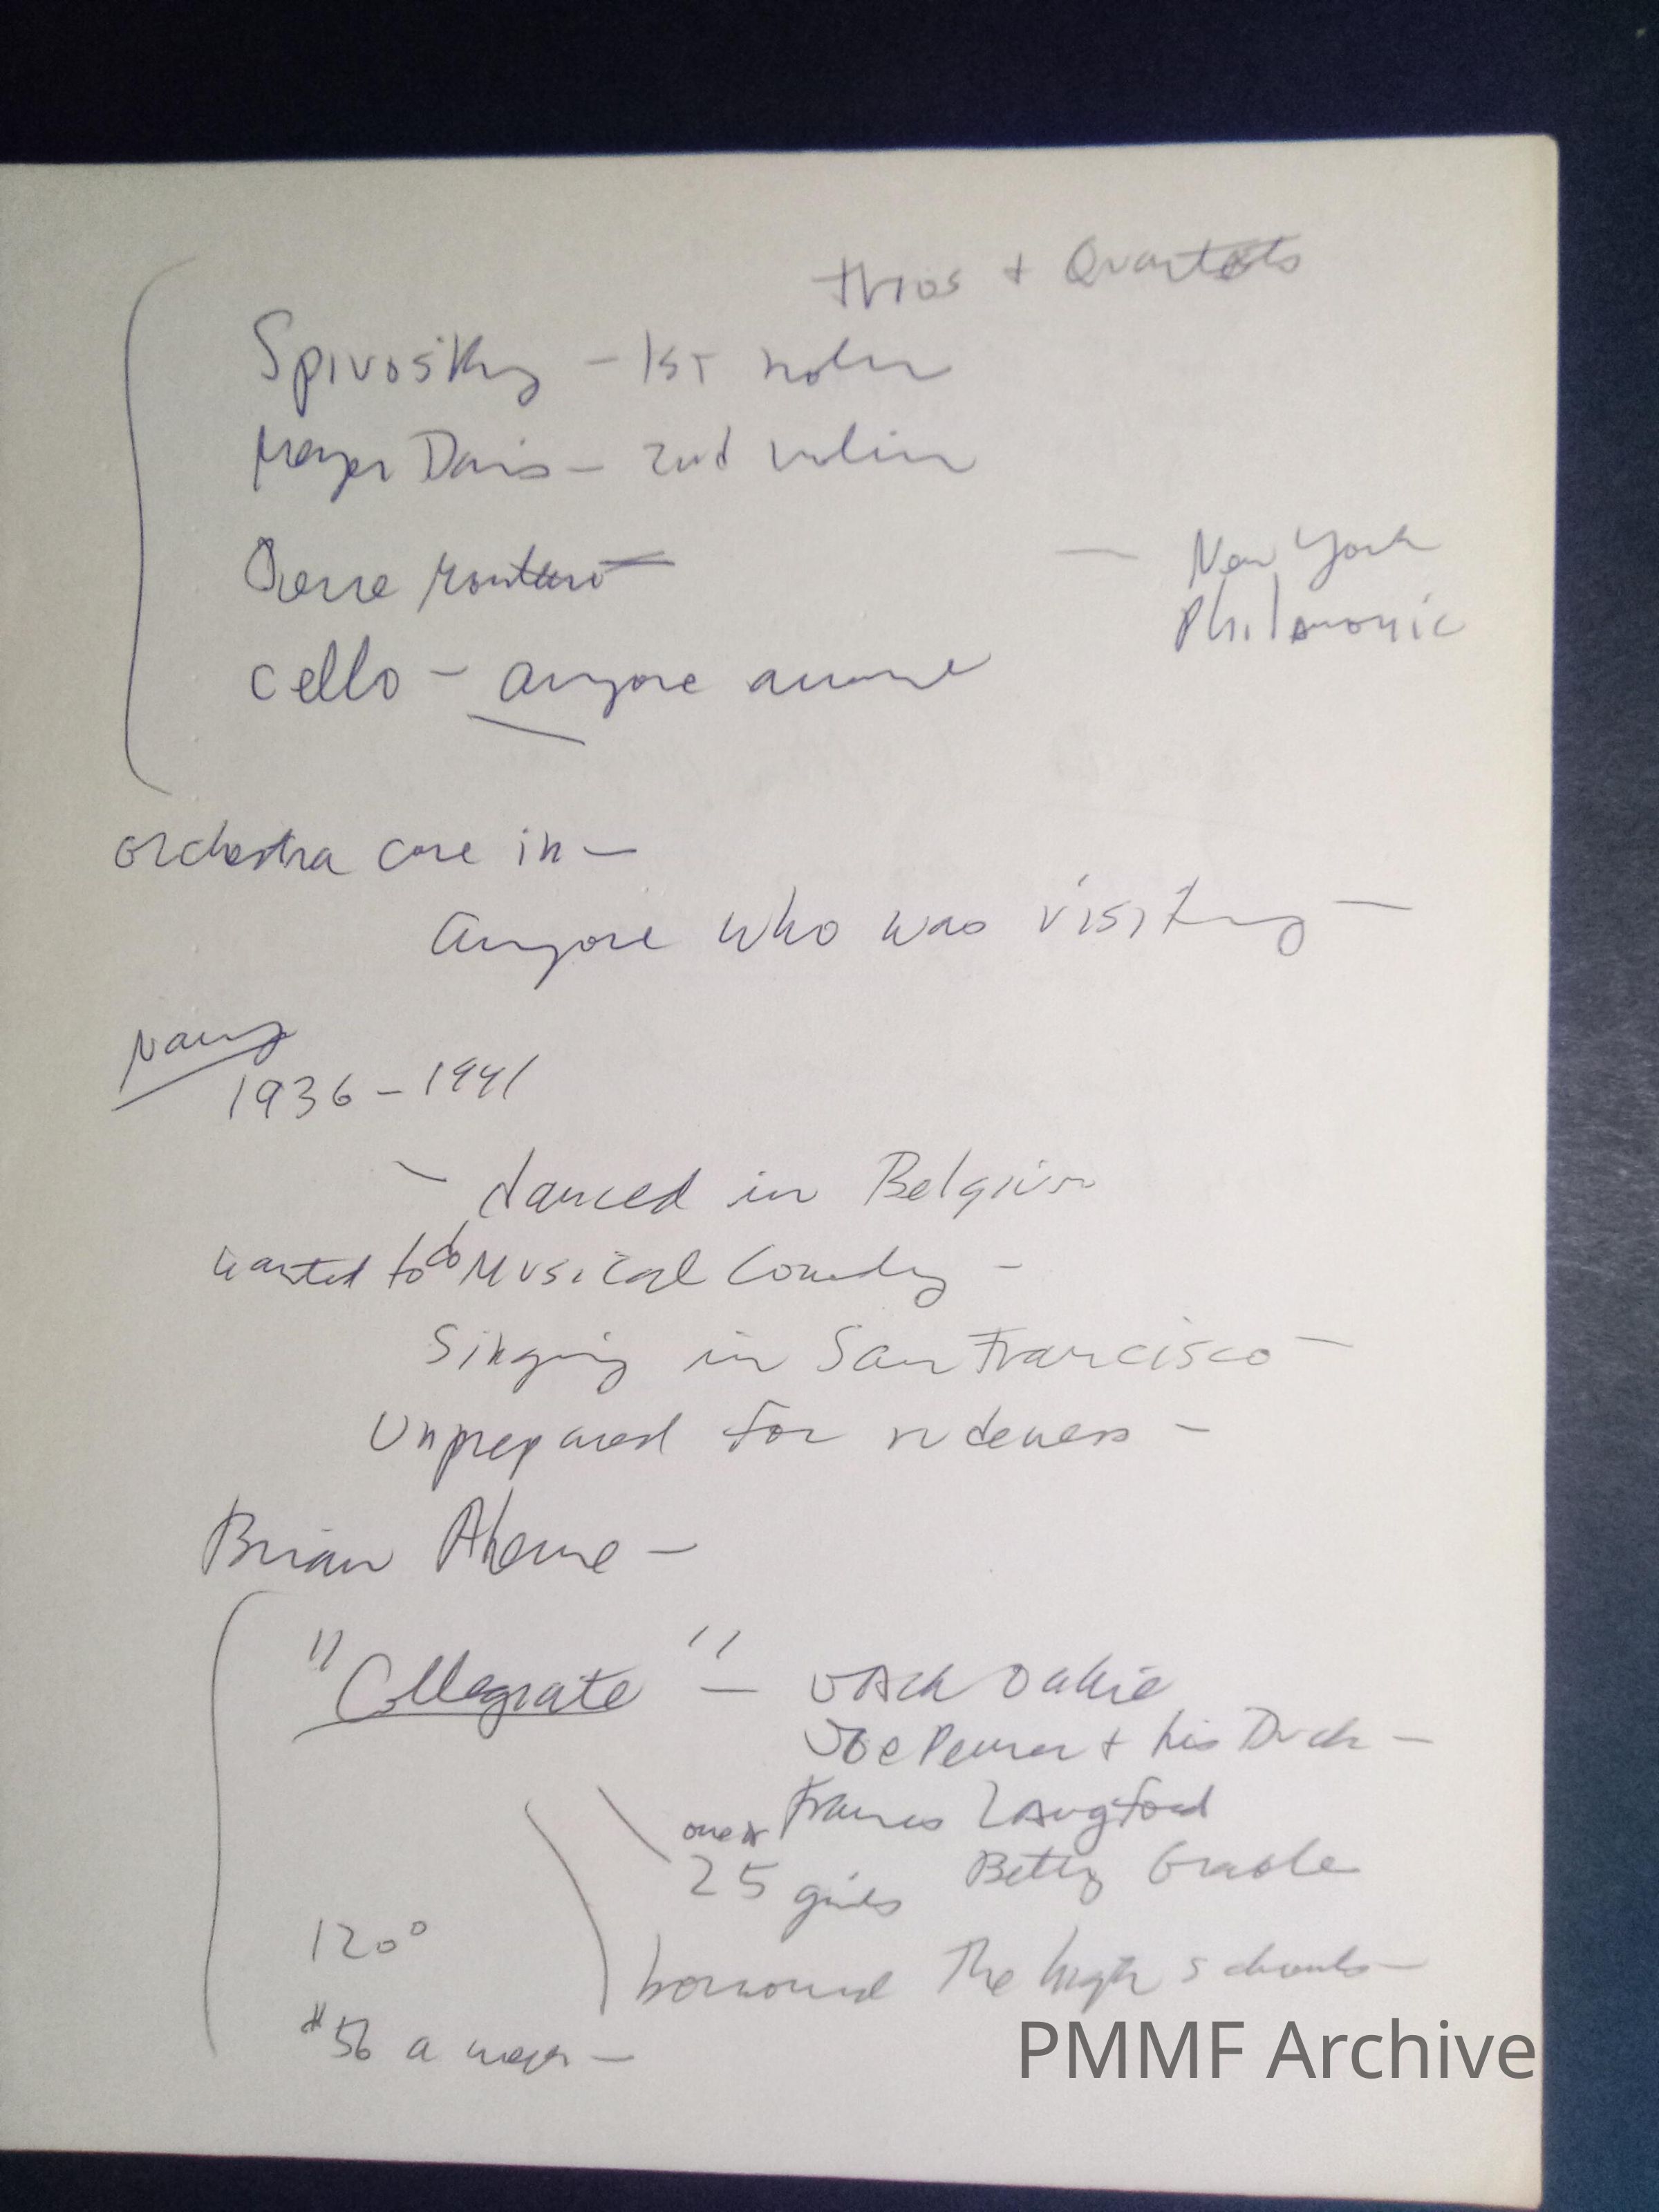 trios + Quartets
Spivosky - 1st violin
Meyer Davis - 2nd violin
Pierre
— New York
Philamonic
cello - anyone
orchestra came in —
anyone who was visiting —
Nancy
1936 - 1941
- danced in Belgium
wanted to do Musical Comedy -
Singing in San Francisco -
Unprepared for rudeness -
Brian Aherne -
"Collegiate" — Jack Oakie
Joe Penner + his Duck -
Frances Langford
25 girls Betty Grable
120°
borrowed the high schools -
$56 a week -
PMMF Archive